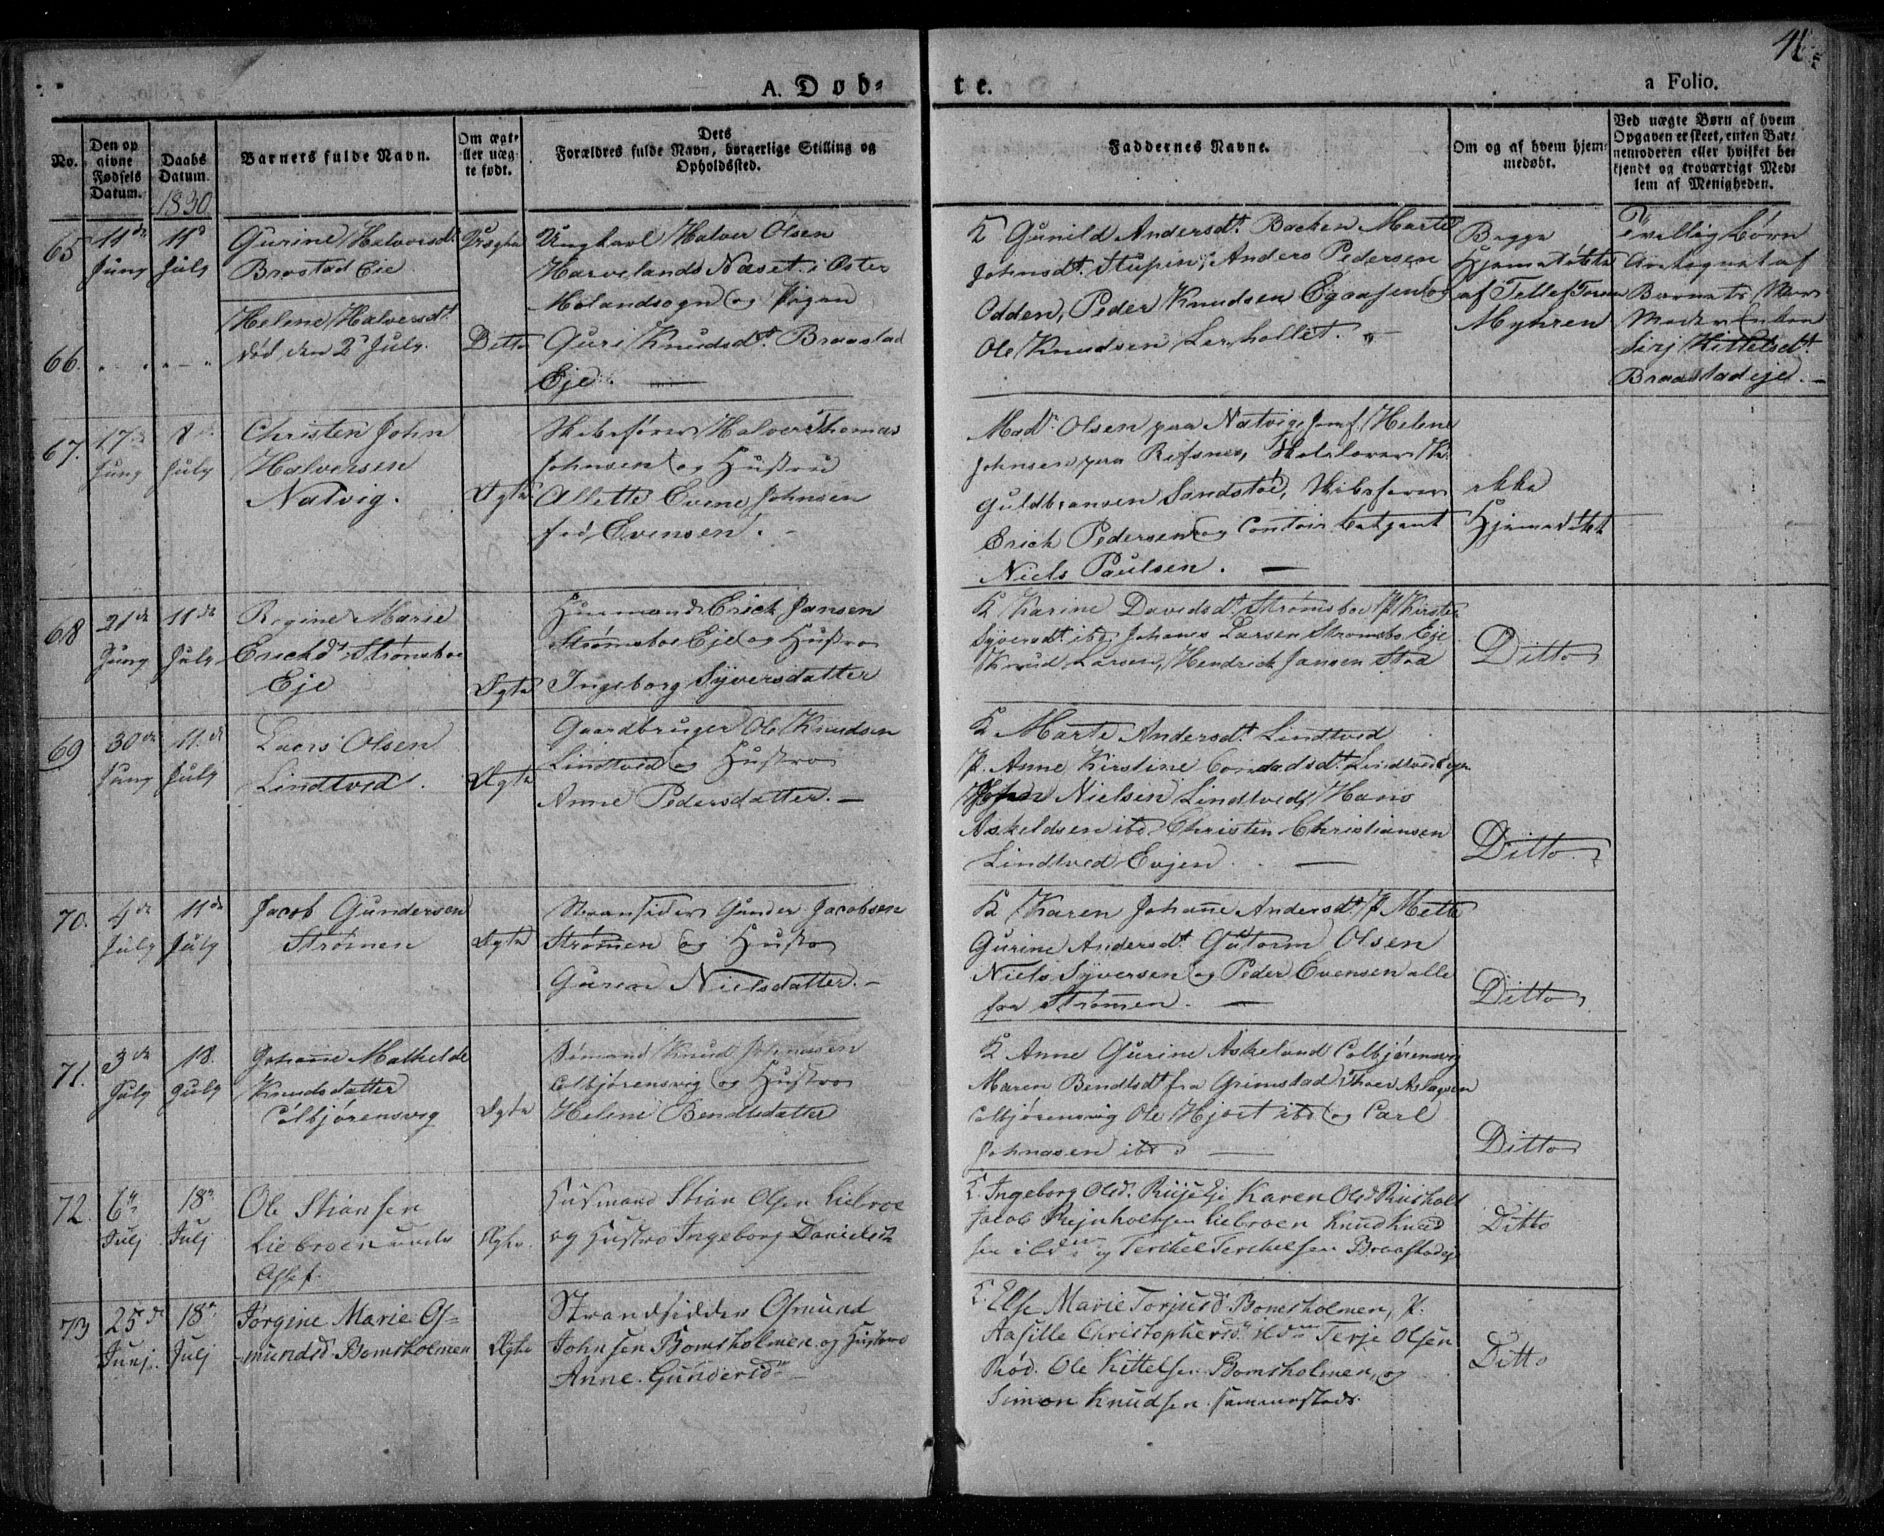 41
A. Døb-
te.
a Folio.
No.
Den op
givne
Fødsels
Datum.
Daabs
Datum.
1830
Barnets fulde Navn.
Om ægt-
eller uæg-
te født.
Dets
Forældres fulde Navn, borgerlige Stilling og
Opholdssted.
Faddernes Navne.
Om og af hvem hjem-
medøbt.
Ved uægte Børn af hvem
Opgaven er skeet, enten Bar-
nemoderen eller hvilket be-
kjendt og troværdigt Med-
lem af Menigheden.
65
11te
Juny
11te
July
Gurine Halversdt.
Braastad Eje
Uægte
Ungkarl Halver Olsen
Harvelands Næset i Øster
Molandsogn og Pigen
K Gunild Andersdt. Backen Marte
Johnsdt. Stupen, Anders Pedersen
Odden, Peder Knudsen Egaasen og
Ole Knudsen Lerhollet.
Begge
Hjemedøbte
af Tellef
Myhren
Tvilling børn
Antegnet af
Barnets
Moder
Sirj Kittelsdt.
Braastadeje.
66.
Helene Halversdt.
død den 2 July.
Ditto
Guri Knudsdt. Braastad
Eje.
67.
17de
Juny
8de
July
Christen John
Halversen
Natvig.
Ægte
Skibsfører Halver Thomas
Johnsen og Hustrue
Allette Evene Johnsen
fød Evensen.
Madm. Olsen paa Natvig, Jomf. Helene
Johnsen paa Rifsnes, Skolelærer
Guldbransen Sandstøe, Skibsfører
Erich Pedersen og Contoir betjent
Niels Paulsen.
ikke
Hjemedøbt
68
21de
Juny
11te
July
Regine Marie
Erichsdt. Strømsboe
Eje
Ægte
Huusmand Erich Jansen
Strømsboe Eje og Hustro
Ingeborg Syversdatter
K Karine Davidsdt. Strømsboe P Kirste
Syversdt. ibd, Johanes Larsen Strømsbo Eje
Knud Larsen, Hendrick Jansen Stoa
Ditto
69
30de
Juny
11te
July
Laers Olsen
Lindtved.
Ægte
Gaardbruger Ole Knudsen
Lindtved og Hustro
Anne Pedersdatter.
K Marte Andersdt. Lindtved
P. Anne Kirstine Conradsdt. Lindtved Ejen
Nielsen Lindtved, Hans
Askeldsen ibd, Christen Christiansen
Lindtved Evjen.
Ditto
70.
4de
July
11te
July
Jacob Gundersen
Strømen
Ægte
Strandsider Gunder Jacobsen
Strømen og Hustro
Gurine Nielsdatter.
K Karen Johanne Andersdt. P Mette
Gurine Andersdt. Gutorm Olsen
Niels Syversen og Peder Evensen alle
fra Strømen.
Ditto
71.
3de
July
18.
July
Johanne Mathilde
Knudsdatter
Colbjørensvig
Ægte
Sømand Knud Johnasen
Colbjørensvig og Hustro
Helene Bendtsdatter
K Anne Gurine Askelsend Colbjørensvig
Maren Bendtsdt. fra Grimstad, Thoer Aslagsen
Colbjørensvig Ole Hjort ibd og Carl
Johnasen ibd
Ditto
72.
6te
Julj
18de
Julj
Ole Stiansen
Liebroen under
Assef.
Ægte
Husmand Stian Olsen Liebroe
og Hustro Ingeborg Danielsdt.
K. Ingeborg Olsd. Eje Karen Olsd
Jacob Rejnholtsen Liebroen Knud Knud
sen ibden og Terckel Terckelsen Braastadeje
Ditto
73
25de
Junj
18de
Julj
Jørgine Marie Os-
mundsd. Bomsholmen
Ægte
Strandsidder Osmund
Johnsen Bomsholmen og Hustroe
Anne Gundersdr
K. Else Marie Torjusd. Bomsholmen, P.
Aasille Christophersd. ibden Terje Olsen
Rød. Ole Kittelsen Bomsholmen, og
Simon Knudsen sammesteds.
Ditto